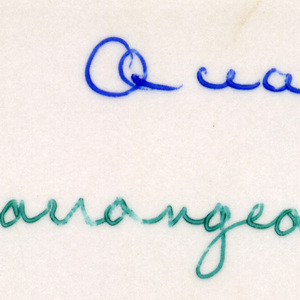 Q ua
arrangeo